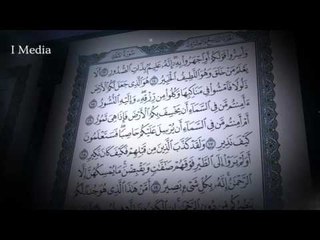 I Media
وَأَسِرُّوا۟ قَوْلَكُمْ أَوِ ٱجْهَرُوا۟ بِهِۦٓ إِنَّهُۥ عَلِيمٌۢ بِذَاتِ ٱلصُّدُورِ ١٣ أَلَا
يَعْلَمُ مَنْ خَلَقَ وَهُوَ ٱللَّطِيفُ ٱلْخَبِيرُ ١٤ هُوَ ٱلَّذِى جَعَلَ لَكُمُ ٱلْأَرْضَ
ذَلُولًا فَٱمْشُوا۟ فِى مَنَاكِبِهَا وَكُلُوا۟ مِن رِّزْقِهِۦ وَإِلَيْهِ ٱلنُّشُورُ ١٥
ءَأَمِنتُم مَّن فِى ٱلسَّمَآءِ أَن يَخْسِفَ بِكُمُ ٱلْأَرْضَ فَإِذَا هِىَ تَمُورُ ١٦
أَمْ أَمِنتُم مَّن فِى ٱلسَّمَآءِ أَن يُرْسِلَ عَلَيْكُمْ حَاصِبًا فَسَتَعْلَمُونَ
كَيْفَ نَذِيرِ ١٧ وَلَقَدْ كَذَّبَ ٱلَّذِينَ مِن قَبْلِهِمْ فَكَيْفَ كَانَ نَكِيرِ ١٨
أَوَلَمْ يَرَوْا۟ إِلَى ٱلطَّيْرِ فَوْقَهُمْ صَـٰٓفَّـٰتٍ وَيَقْبِضْنَ مَا يُمْسِكُهُنَّ إِلَّا
ٱلرَّحْمَـٰنُ إِنَّهُۥ بِكُلِّ شَىْءٍۭ بَصِيرٌ ١٩ أَمَّنْ هَـٰذَا ٱلَّذِى هُوَ جُندٌ لَّكُمْ